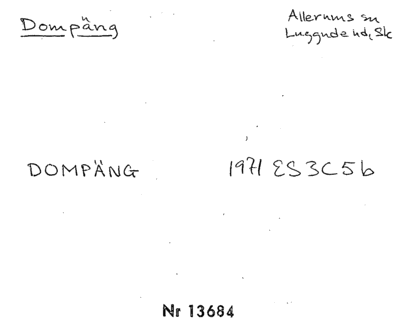 Dompäng
Allerums sn
Luggude hd, Sk
DOMPÄNG 1971 ES3C5b
Nr 13684